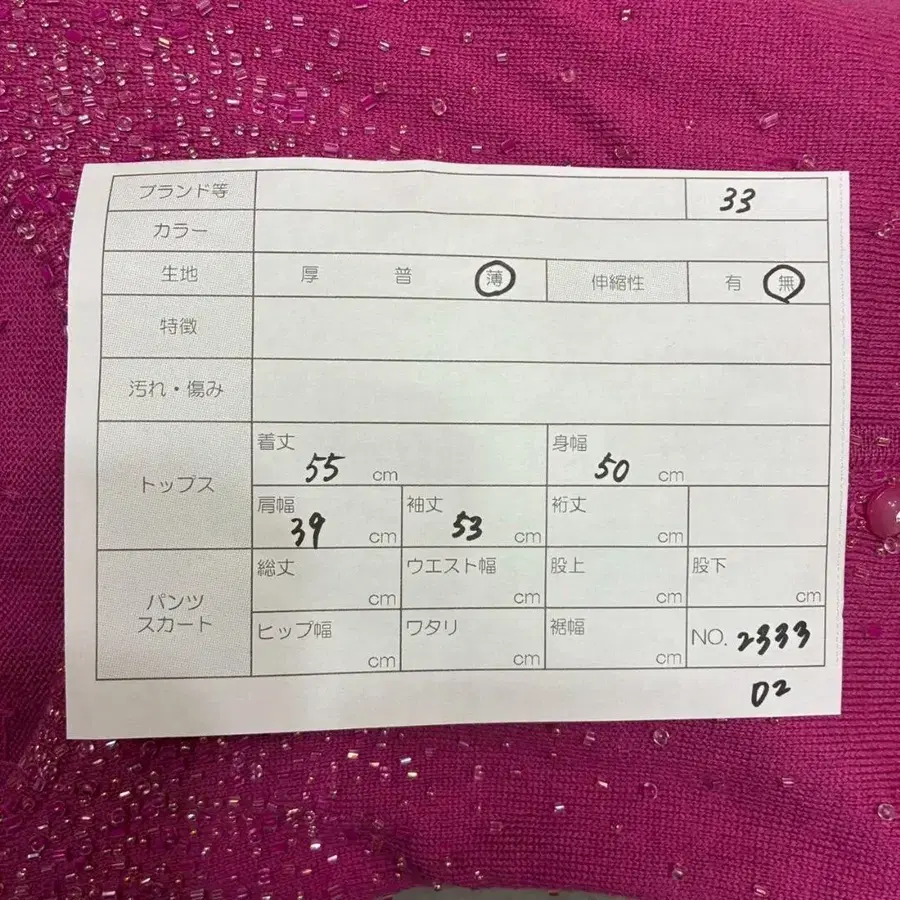 ブランド等 33
カラー
生地 厚 普 薄 伸縮性 有 無
特徴
汚れ・傷み
トップス
着丈 55 cm 身幅 50 cm
肩幅 39 cm 袖丈 53 cm 裄丈 cm
パンツ
スカート
総丈 cm ウエスト幅 cm 股上 cm 股下 cm
ヒップ幅 cm ワタリ cm 裾幅 cm NO. 2333
D2